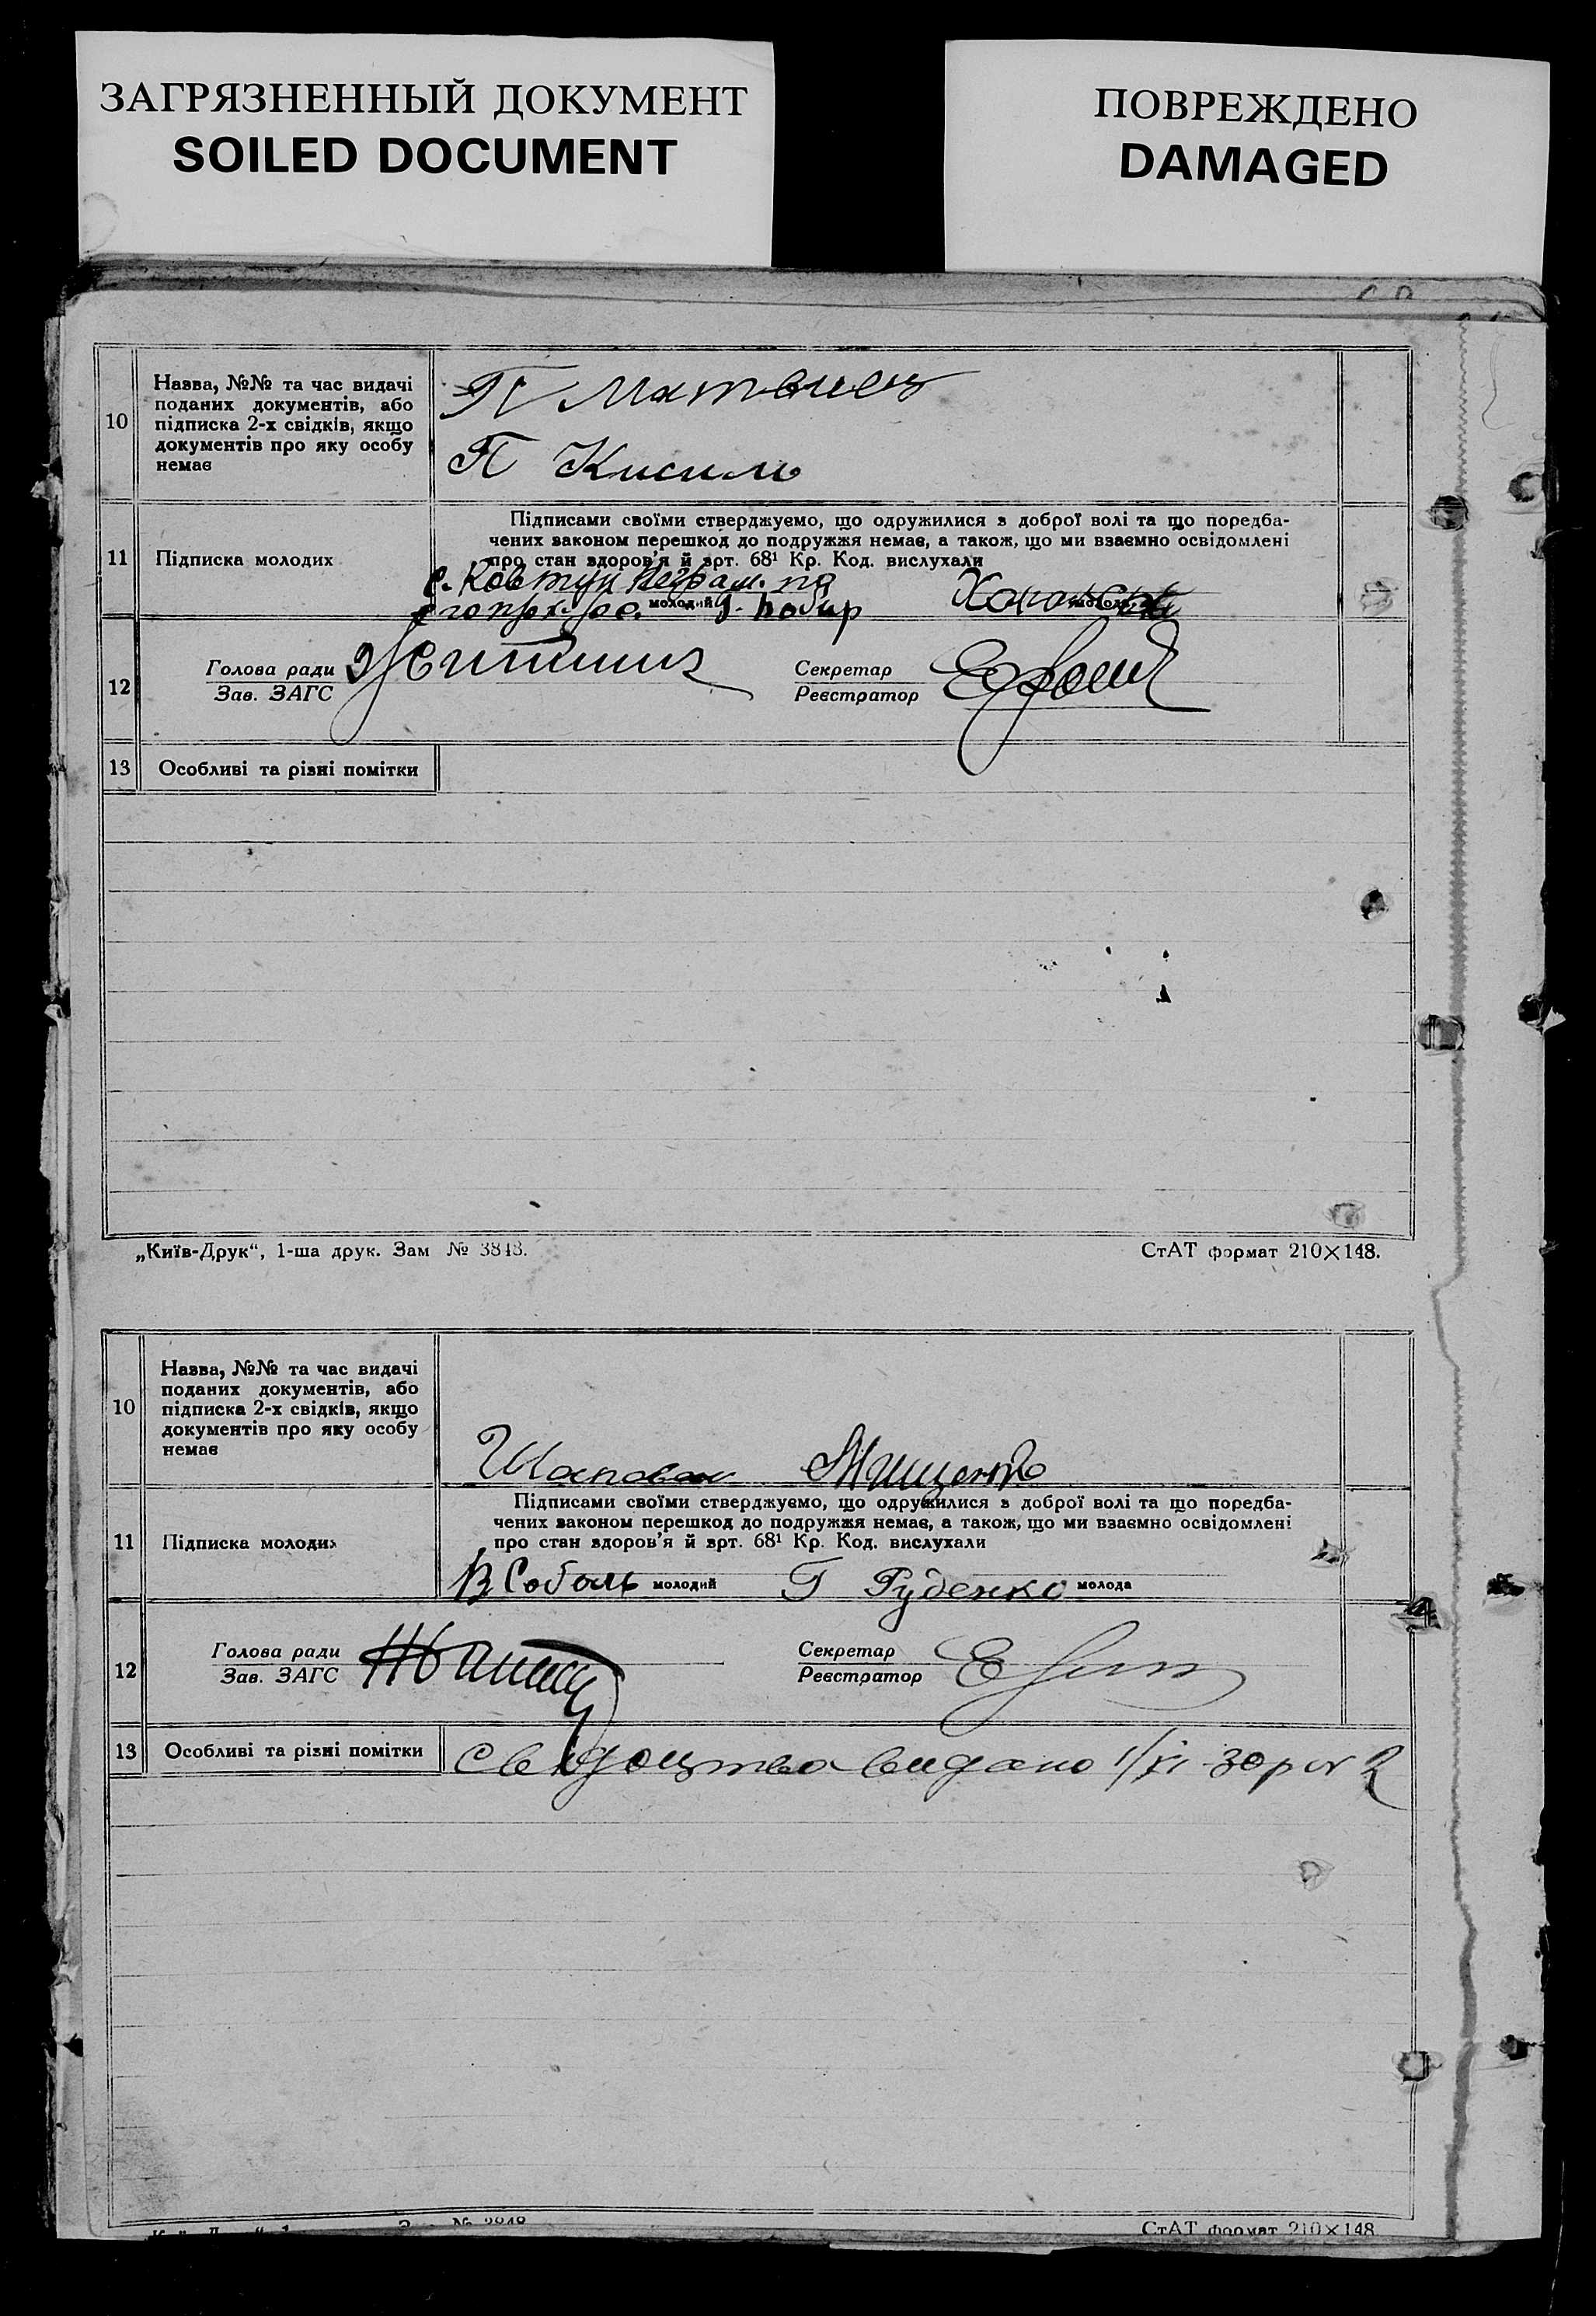 ЗАГРЯЗНЕННЫЙ ДОКУМЕНТ
SOILED DOCUMENT
ПОВРЕЖДЕНО
DAMAGED
10
Назва, №№ та час видачі
поданих документів, або
підписка 2-х свідків, якщо
документів про яку особу
немає
П Матвиец
П Кисиль
11
Підписка молодих
Підписами своїми стверджуємо, що одружилися з доброї волі та що поредба-
чених законом перешкод до подружжя немає, а також, що ми взаємно освідомлені
про стан здоров'я й арт. 68¹ Кр. Код. вислухали
Ковтун
молодий
12
Голова ради
Зав. ЗАГС
Секретар
Реєстратор
13
Особливі та різні помітки
„Київ-Друк“, 1-ша друк. Зам № 3848.
СтАТ формат 210×148.
10
Назва, №№ та час видачі
поданих документів, або
підписка 2-х свідків, якщо
документів про яку особу
немає
Шаповал Мищенко
11
Підписка молодих
Підписами своїми стверджуємо, що одружилися з доброї волі та що поредба-
чених законом перешкод до подружжя немає, а також, що ми взаємно освідомлені
про стан здоров'я й арт. 68¹ Кр. Код. вислухали
В Соболь молодий Г Руденко молода
12
Голова ради
Зав. ЗАГС
Секретар
Реєстратор
13
Особливі та різні помітки
Свидоцтво видано 1/XI-30р № 2
№ 3848
СтАТ формат 210×148